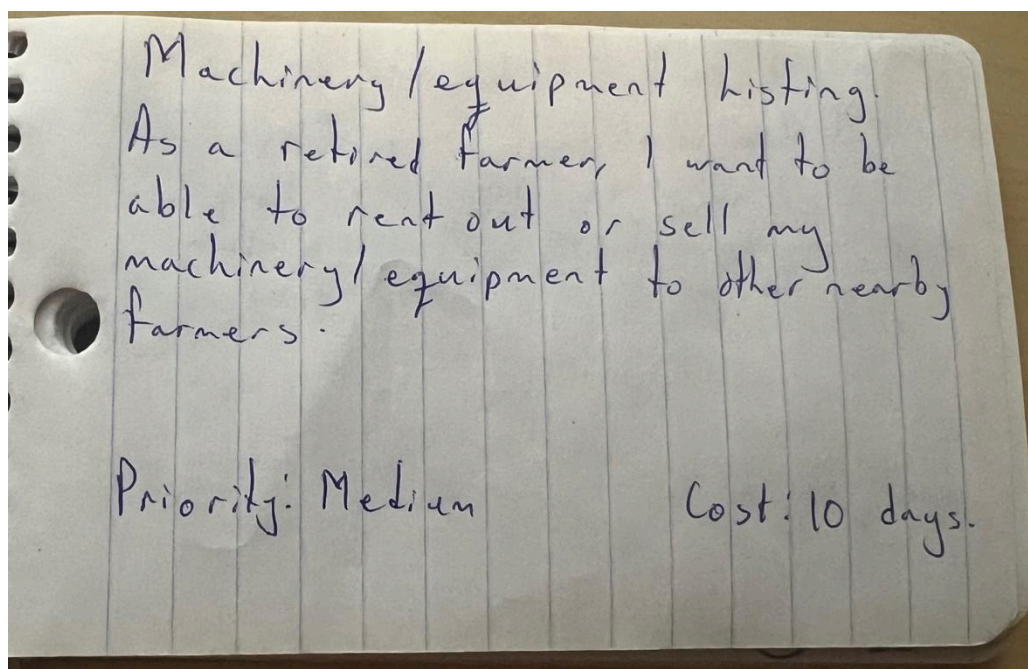 Machinery/equipment Listing.
As a retired farmer, I want to be
able to rent out or sell my
machinery/equipment to other nearby
farmers.
Priority: Medium Cost: 10 days.